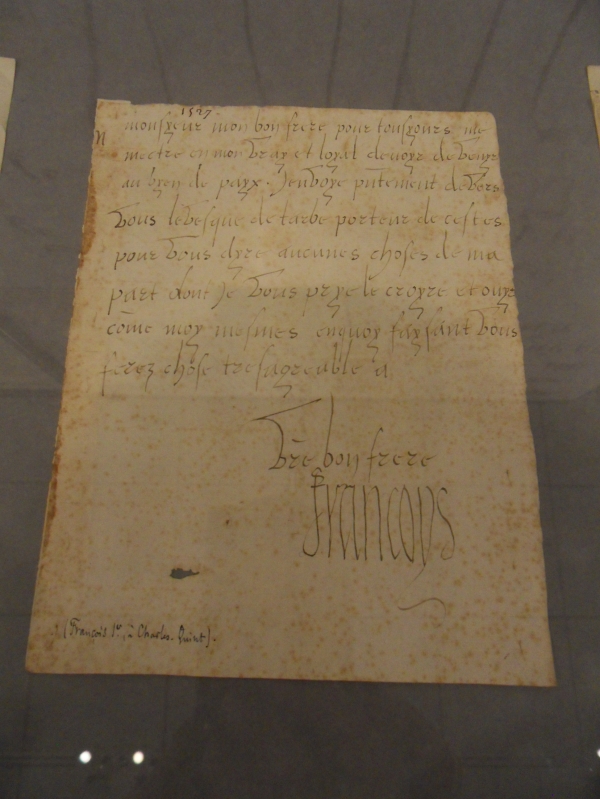 1527.
monsyeur mon bon frere pour tousyours me
mectre en mon vray et loyal devoyr de venyr
au byen de payx. Jenvoye pntement devers
vous levesque de tarbe porteur de cestes
pour vous dyre aucunes choses de ma
part dont Je vous prye le croyre et ouyr
come moy mesmes enquoy faysant vous
ferez chose tresagreable a
Vre bon frere
Francoys
(François Ier, à Charles-Quint).